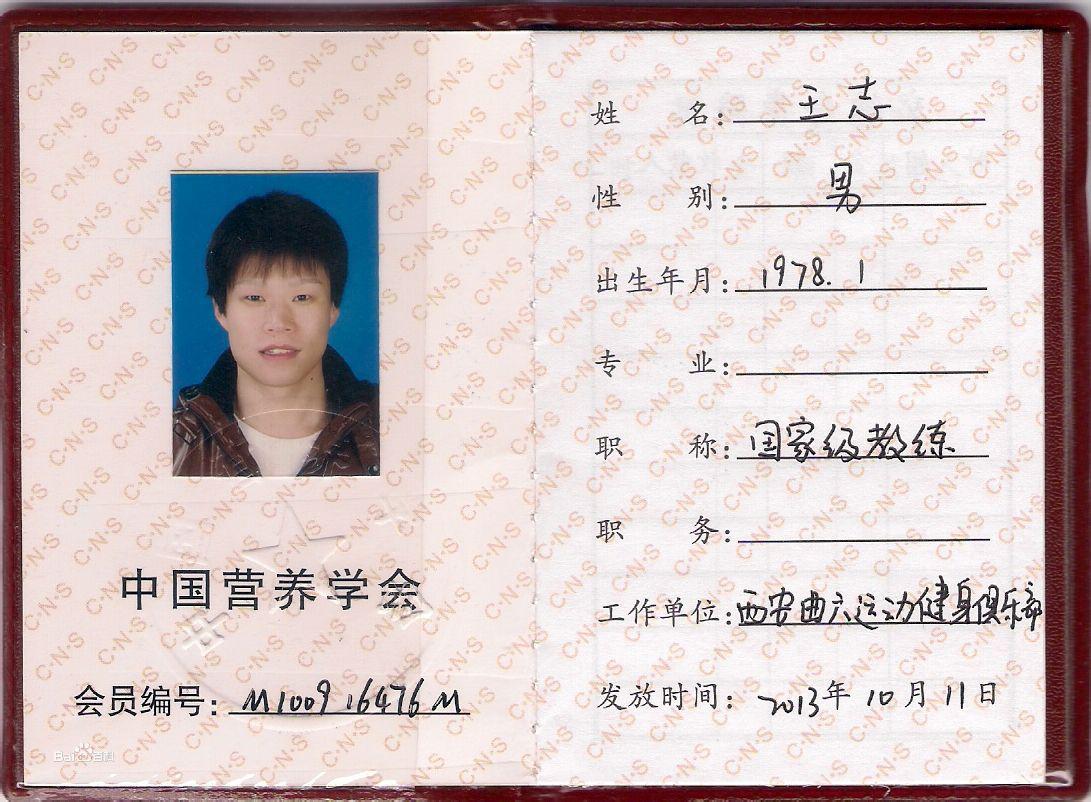 中国营养学会
会员编号: M100916476M
Bai百科
姓名: 王志
性别: 男
出生年月: 1978.1
专业:
职称: 国家级教练
职务:
工作单位: 西安曲六运动健身俱乐部
发放时间: 2013年10月11日